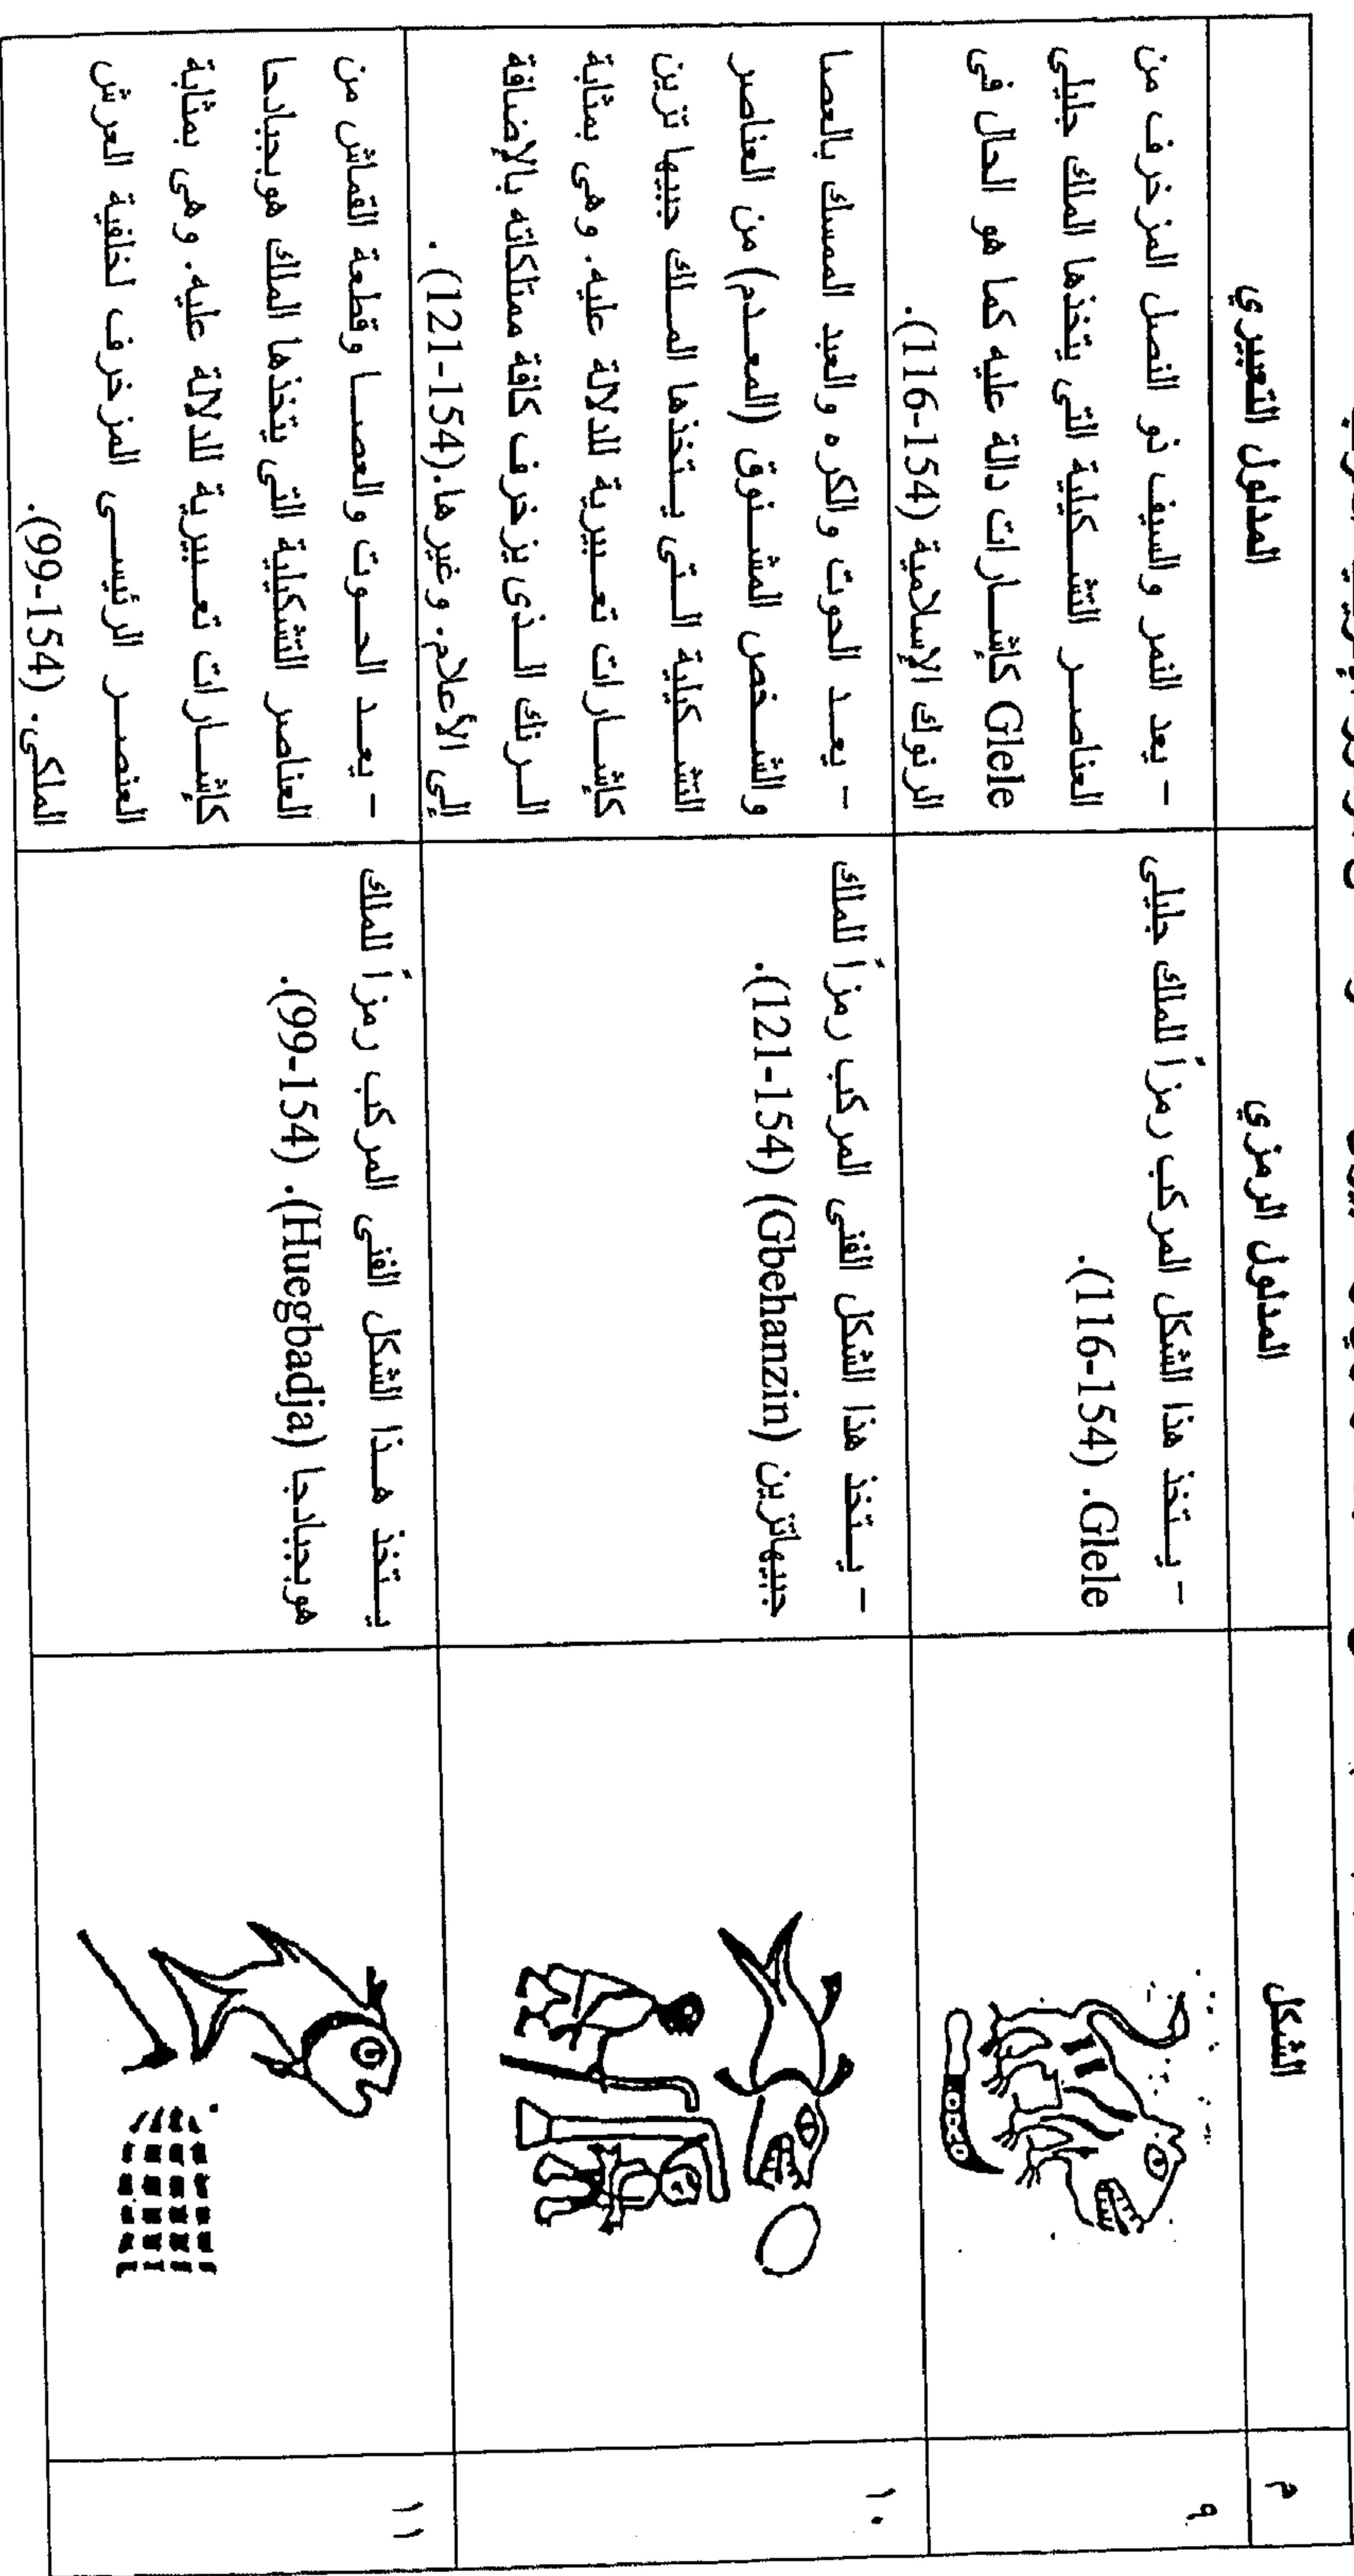 م
الشكل
المدلول الرمزي
المدلول التعبيري
٩
- يـتخذ هذا الشكل المركب رمزاً للملك جليلى
Glele. (116-154).
- يعد النمر والسيف ذو النصل المزخرف من
العناصـر التشـكيلية التى يتخذها الملك جليلى
Glele كإشـارات دالة عليه كما هو الحال فى
الرنوك الإسلامية (116-154).
١٠
- يـتخذ هذا الشكل الفنى المركب رمزاً للملك
جبيهانزين (Gbehanzin) (121-154).
- يعـد الحوت والكره والعبد الممسك بالعصا
والشـخص المشـنوق (المعـدم) من العناصر
التشـكيلية الـتى يـتخذها المـلك جبيها نزين
كإشـارات تعـبيرية للدلالة عليه. وهى بمثابة
الـرنك الـذى يزخرف كافة ممتلكاته بالإضافة
إلى الأعلام. وغيرها. (121-154) .
١١
يـتخذ هـذا الشكل الفنى المركب رمزاً للملك
هويجبادجا (Huegbadja). (99-154).
- يعـد الحـوت والعصـا وقطعة القماش من
العناصر التشكيلية التى يتخذها الملك هويجبادجا
كإشـارات تعـبيرية للدلالة عليه. وهى بمثابة
العنصـر الرئيسـى المزخرف لخلفية العرش
الملكى. (99-154).